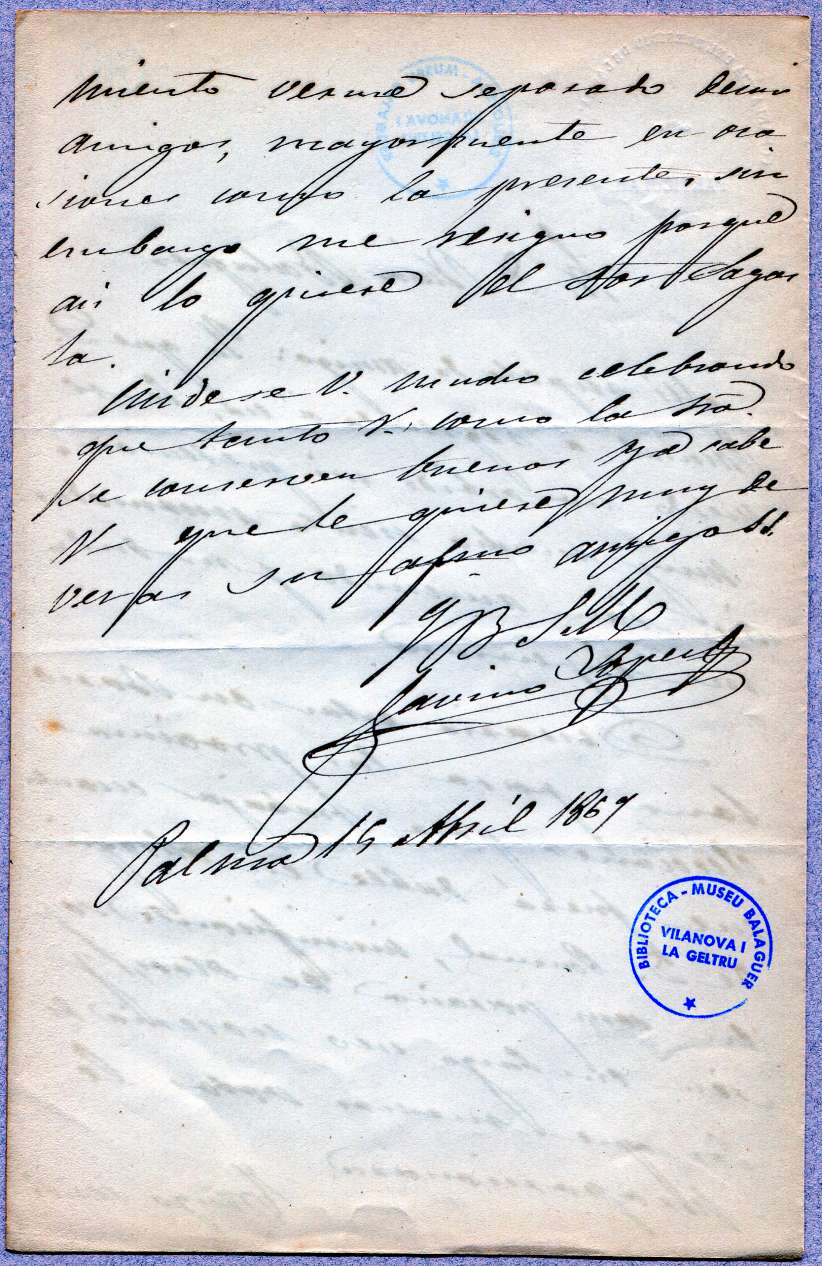 miento verme separado de mis
amigos, mayormente en oca
siones como la presente, sin
embargo me resigno porque
asi lo quiere el Sor Sagas
ta.
Cuidese V. mucho celebrando
que tanto V. como la Sra.
se conserven buenos ya sabe
V. que le quiere muy de
veras su afmo amigo S.S.
q B S M
Savino
Palma 15 Abril 1869
BIBLIOTECA - MUSEU BALAGUER
VILANOVA I
LA GELTRU